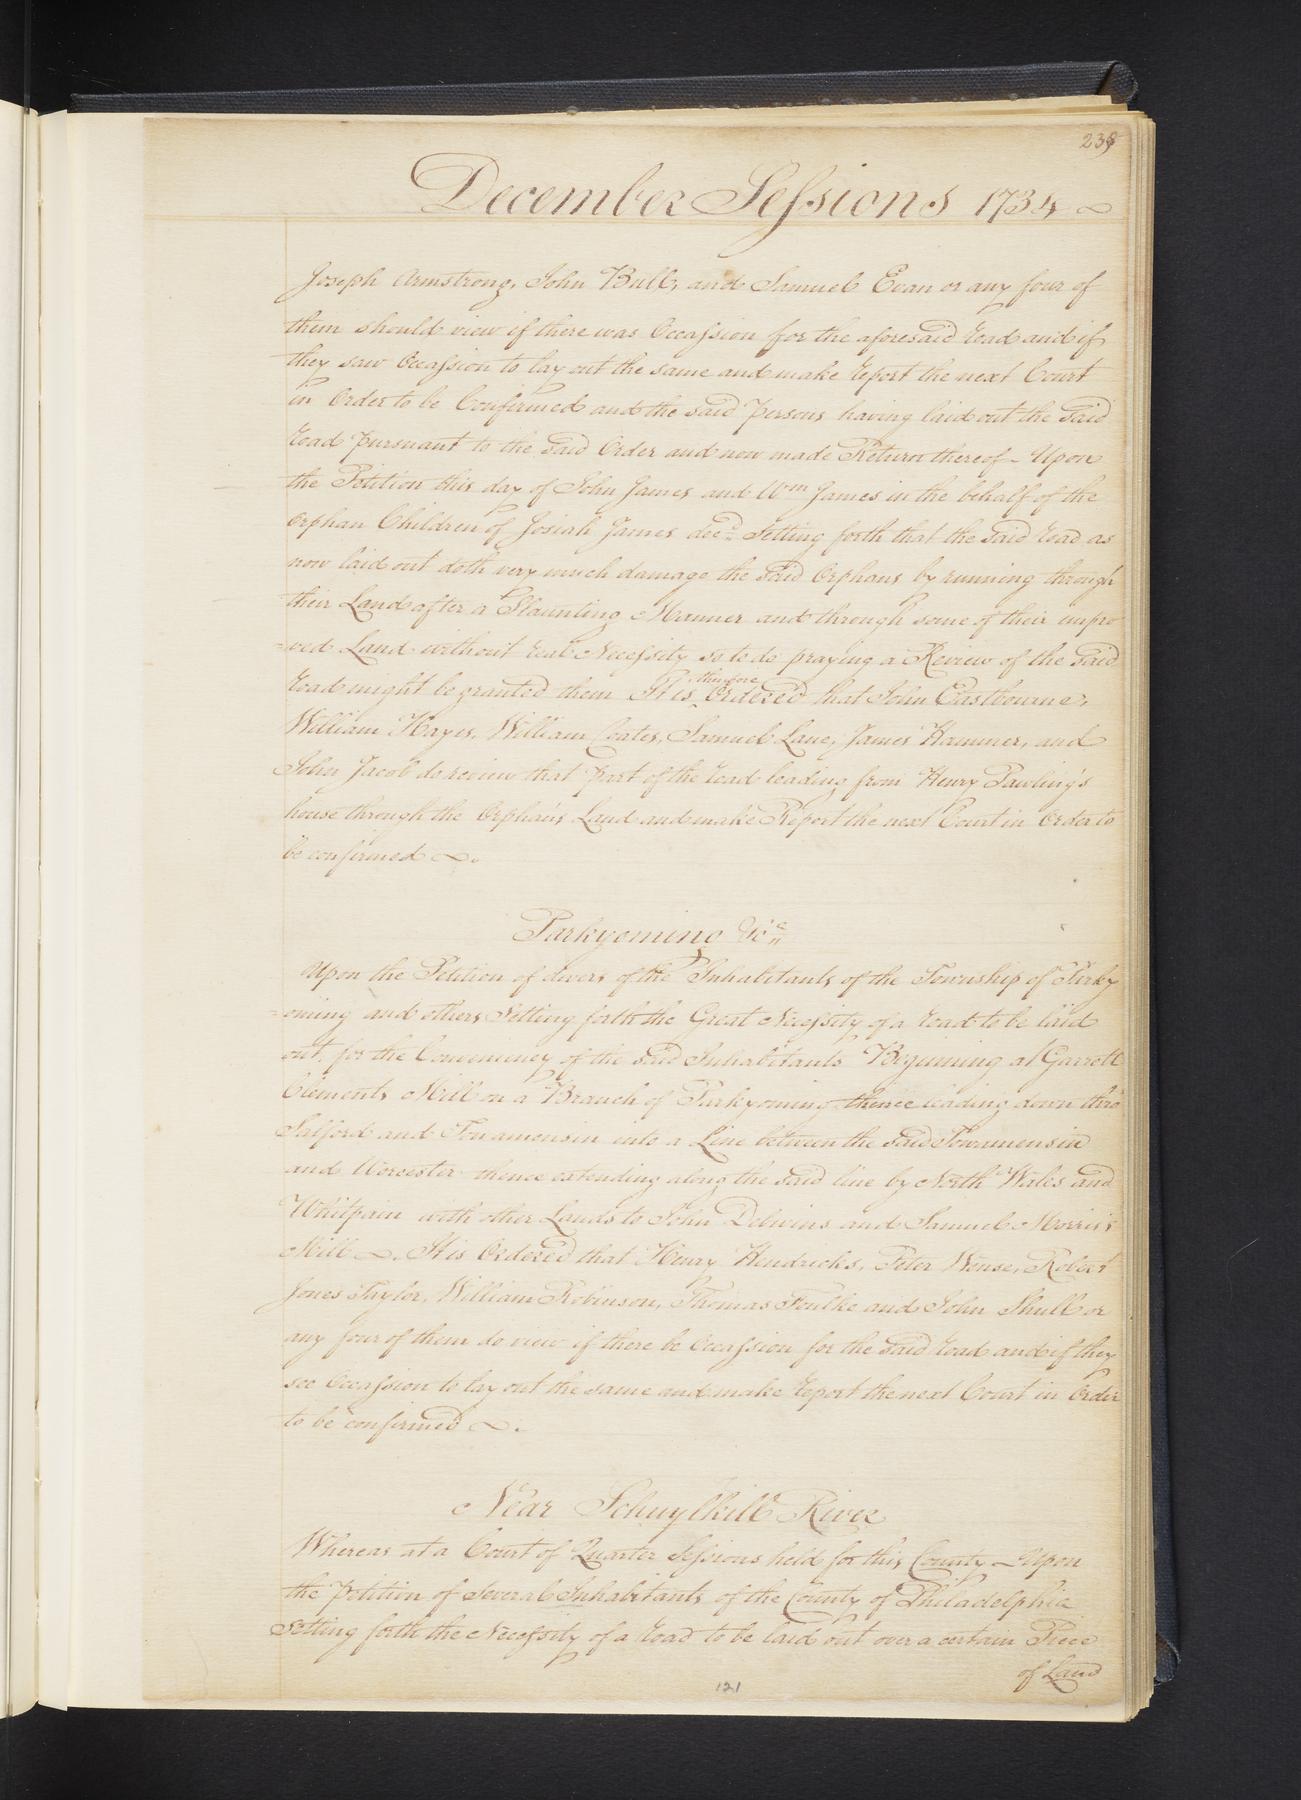 239
December Sessions 1734
Joseph Armstrong, John Bull, and Samuel Evan or any four of
them should view if there was Occassion for the aforesaid Road and if
they saw Occassion to lay out the same and make Report the next Court
in Order to be Confirmed and the said Persons having laid out the said
Road Pursuant to the said Order and now made Return thereof - Upon
the Petition this day of John James and Wm James in the behalf of the
Orphan Children of Josiah James decd Setting forth that the said Road as
now laid out doth very much damage the said Orphans by running through
their Land after a Slaunting Manner and through some of their impro
=ved Land without real Necessity so to do praying a Review of the said
therefore
Road might be granted them It is ^ Ordered that John Eastbourne,
William Hayes, William Coates, Samuel Lane, James Hammer, and
John Jacob do review that part of the Road leading from Henry Pawling's
house through the Orphan's Land and make Report the next Court in Order to
be confirmed
Parkyoming &ca
Upon the Petition of divers of the Inhabitants of the Township of Pirky
=oming and others Setting forth the Great Necessity of a Road to be laid
out, for the Conveniency of the said Inhabitants Begining at Garrett
Clements Mill on a Branch of Parkyoming thence leading down thro
Salford and Towamensin into a Line between the said Towamensin
and Worcester thence extending along the said line by North Wales and
Whitpain with other Lands to John Delwins and Samuel Morris's
Mill. It is Ordered that Henry Hendricks, Peter Wense, Robert
Jones Taylor, William Robinson, Thomas Foulke and John Shull or
any four of them do view if there be Occassion for the said Road and if they
see Occassion to lay out the same and make Report the next Court in Order
to be confirmed
Near Schuylkill River
Whereas at a Court of Quarter Sessions held for this County - Upon
the Petition of Several Inhabitants of the County of Philadelphia
Setting forth the Necessity of a Road to be laid out over a certain Piece
of Land
121